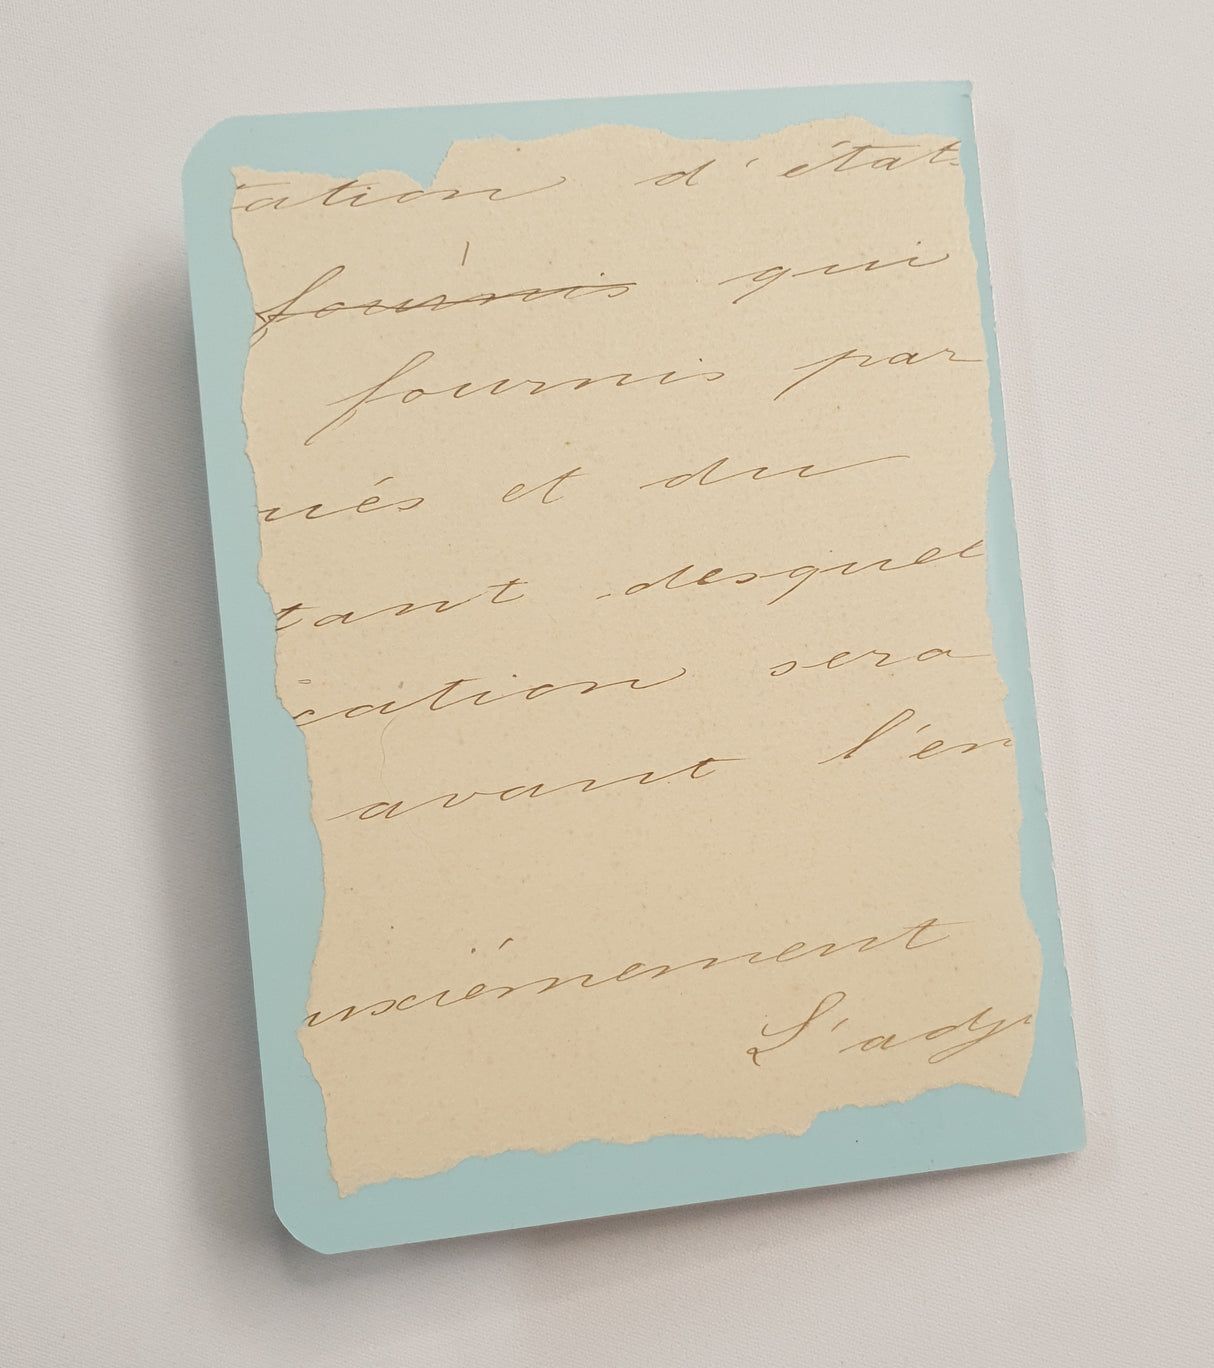 ation d'état
fournis qui
fournis par
ués et du
tant desquel
cation sera
avant l'en
uxièmement
L'adj